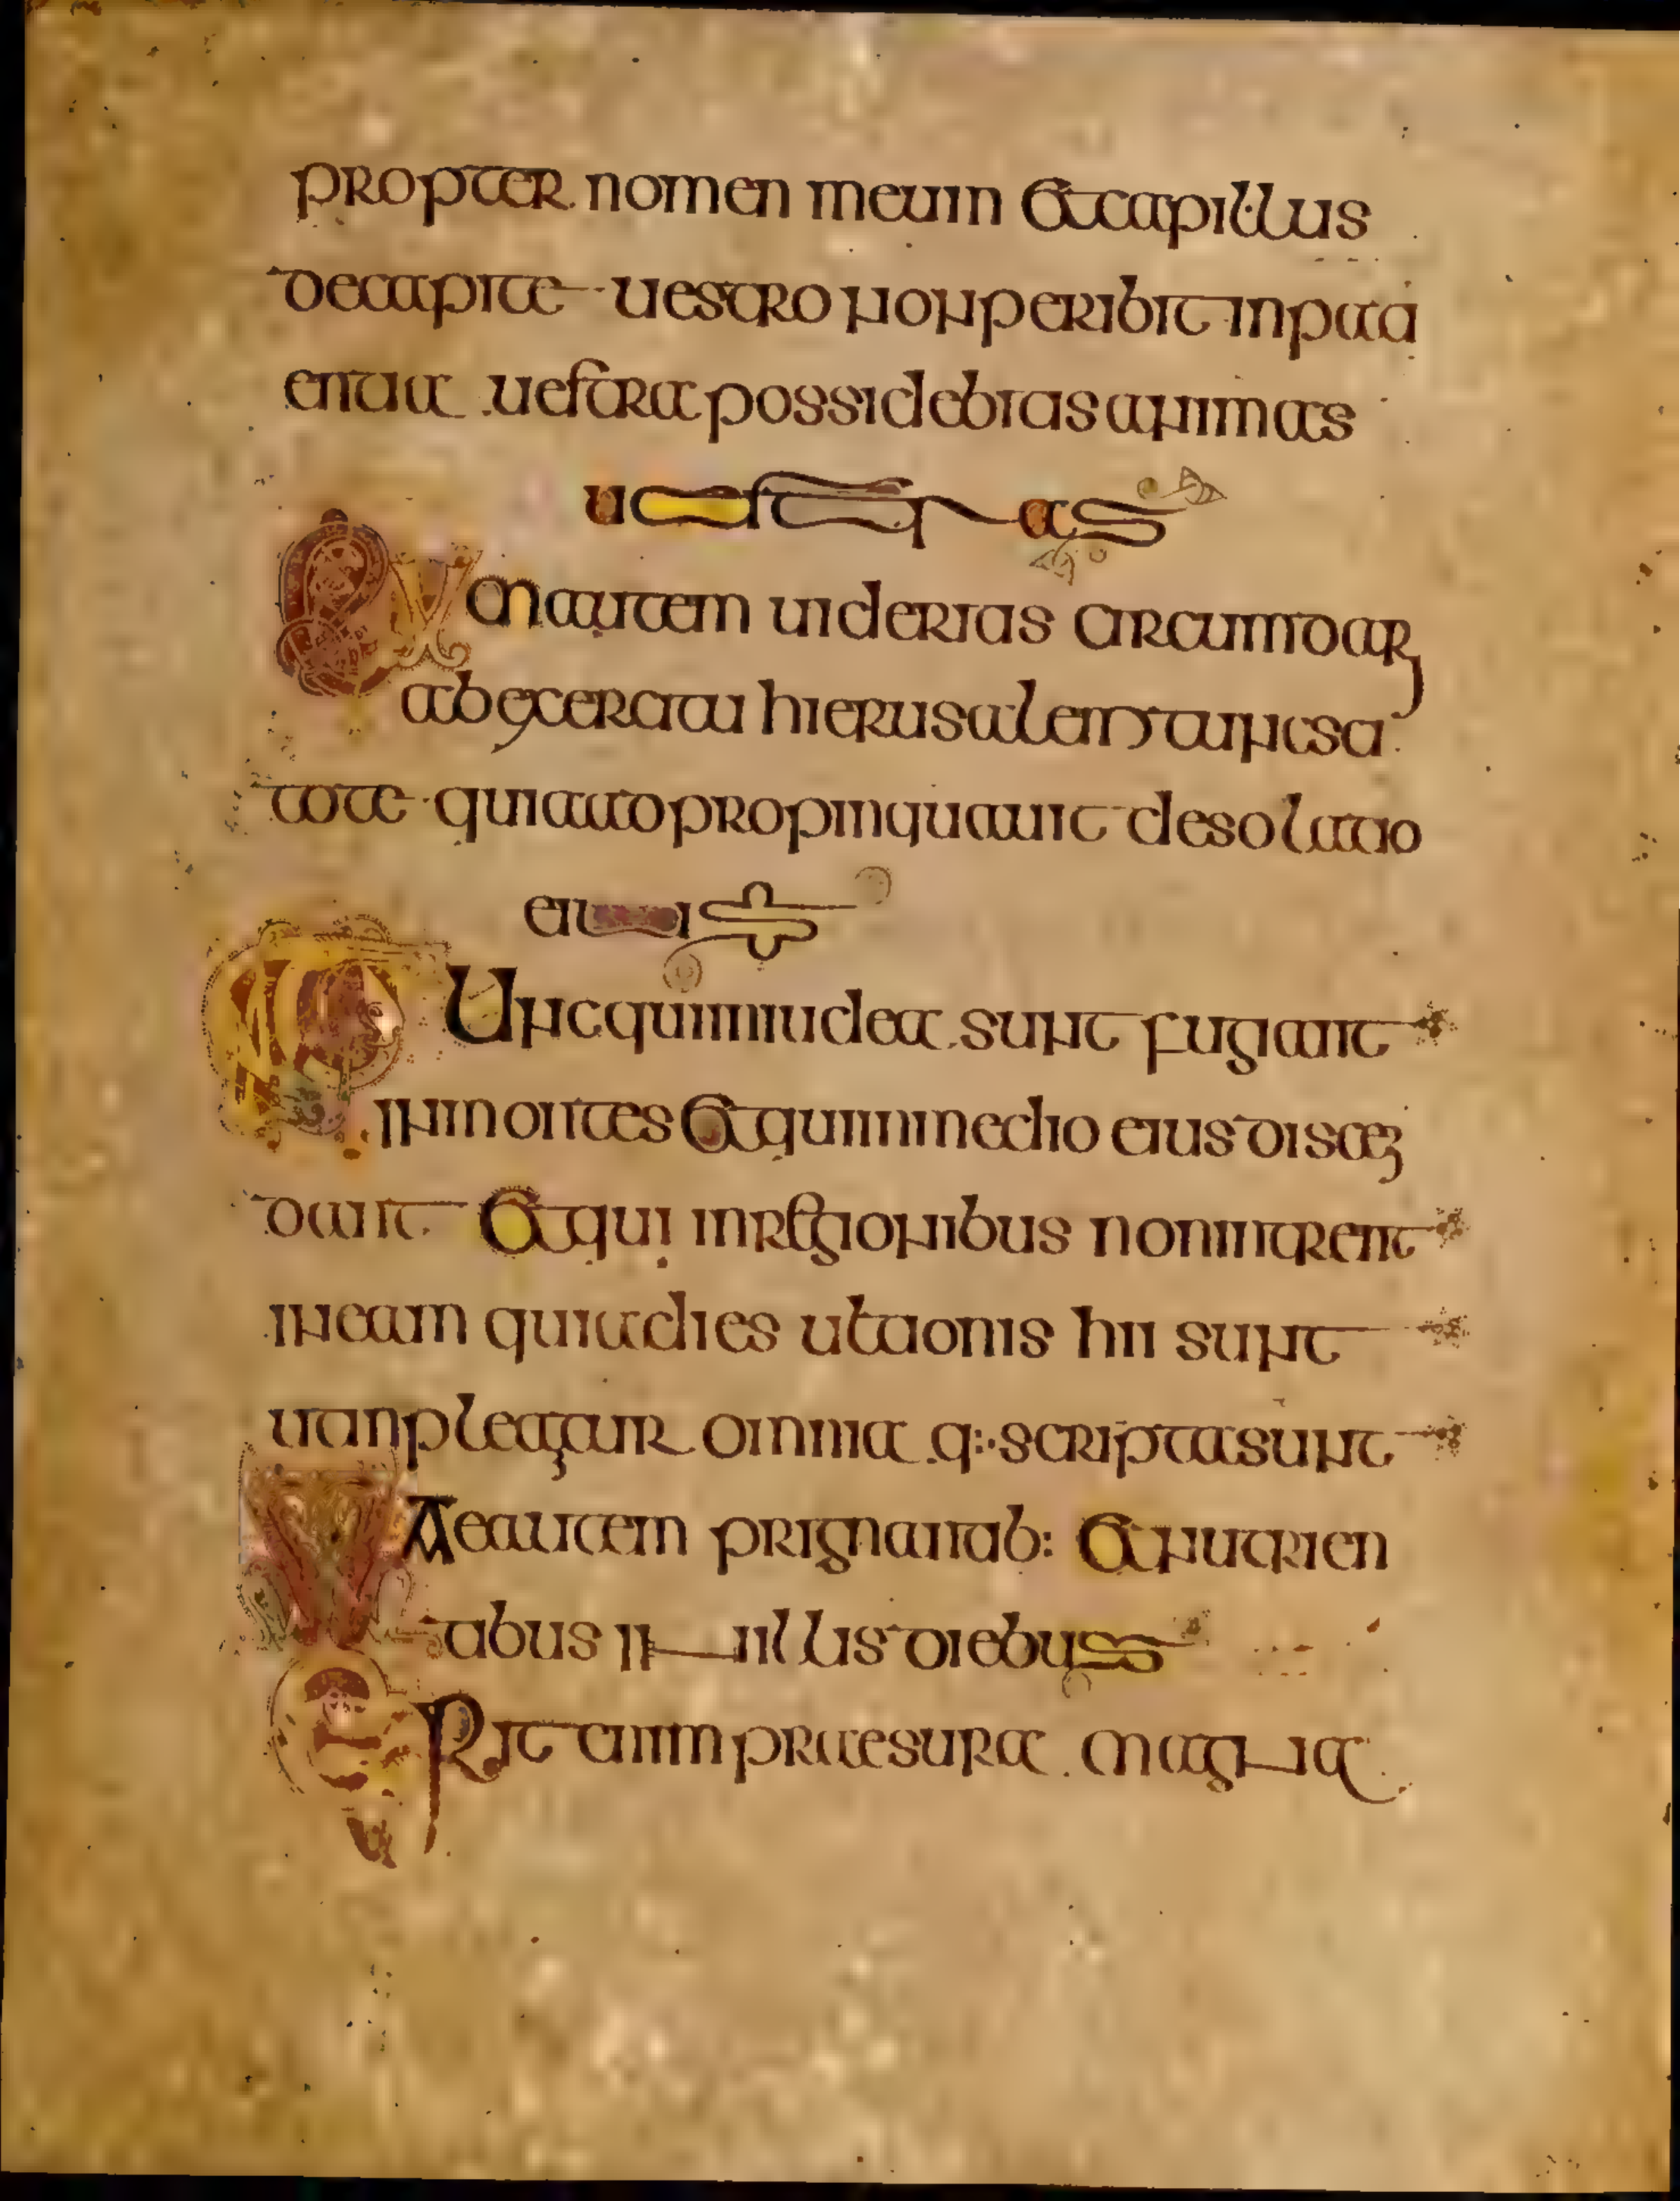 propter nomen meum Et capillus
de capite uestro non peribit in pati
entia uestra possidebitis animas
uestras
Cum autem uideritis circumdari
ab exercitu hierusalem tunc sci
tote quia adpropinquauit desolatio
eius
Tunc qui in iudea sunt fugiant
in montes Et qui in medio eius disce
dant Et qui in regionibus non intrent
in eam quia dies ultionis hii sunt
ut inpleantur omnia q: scripta sunt
Vae autem prignantib: Et nutrien
tibus in illis diebus
Erit enim praesura magna